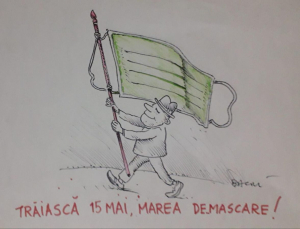 TRĂIASCĂ 15 MAI, MAREA DEMASCARE!